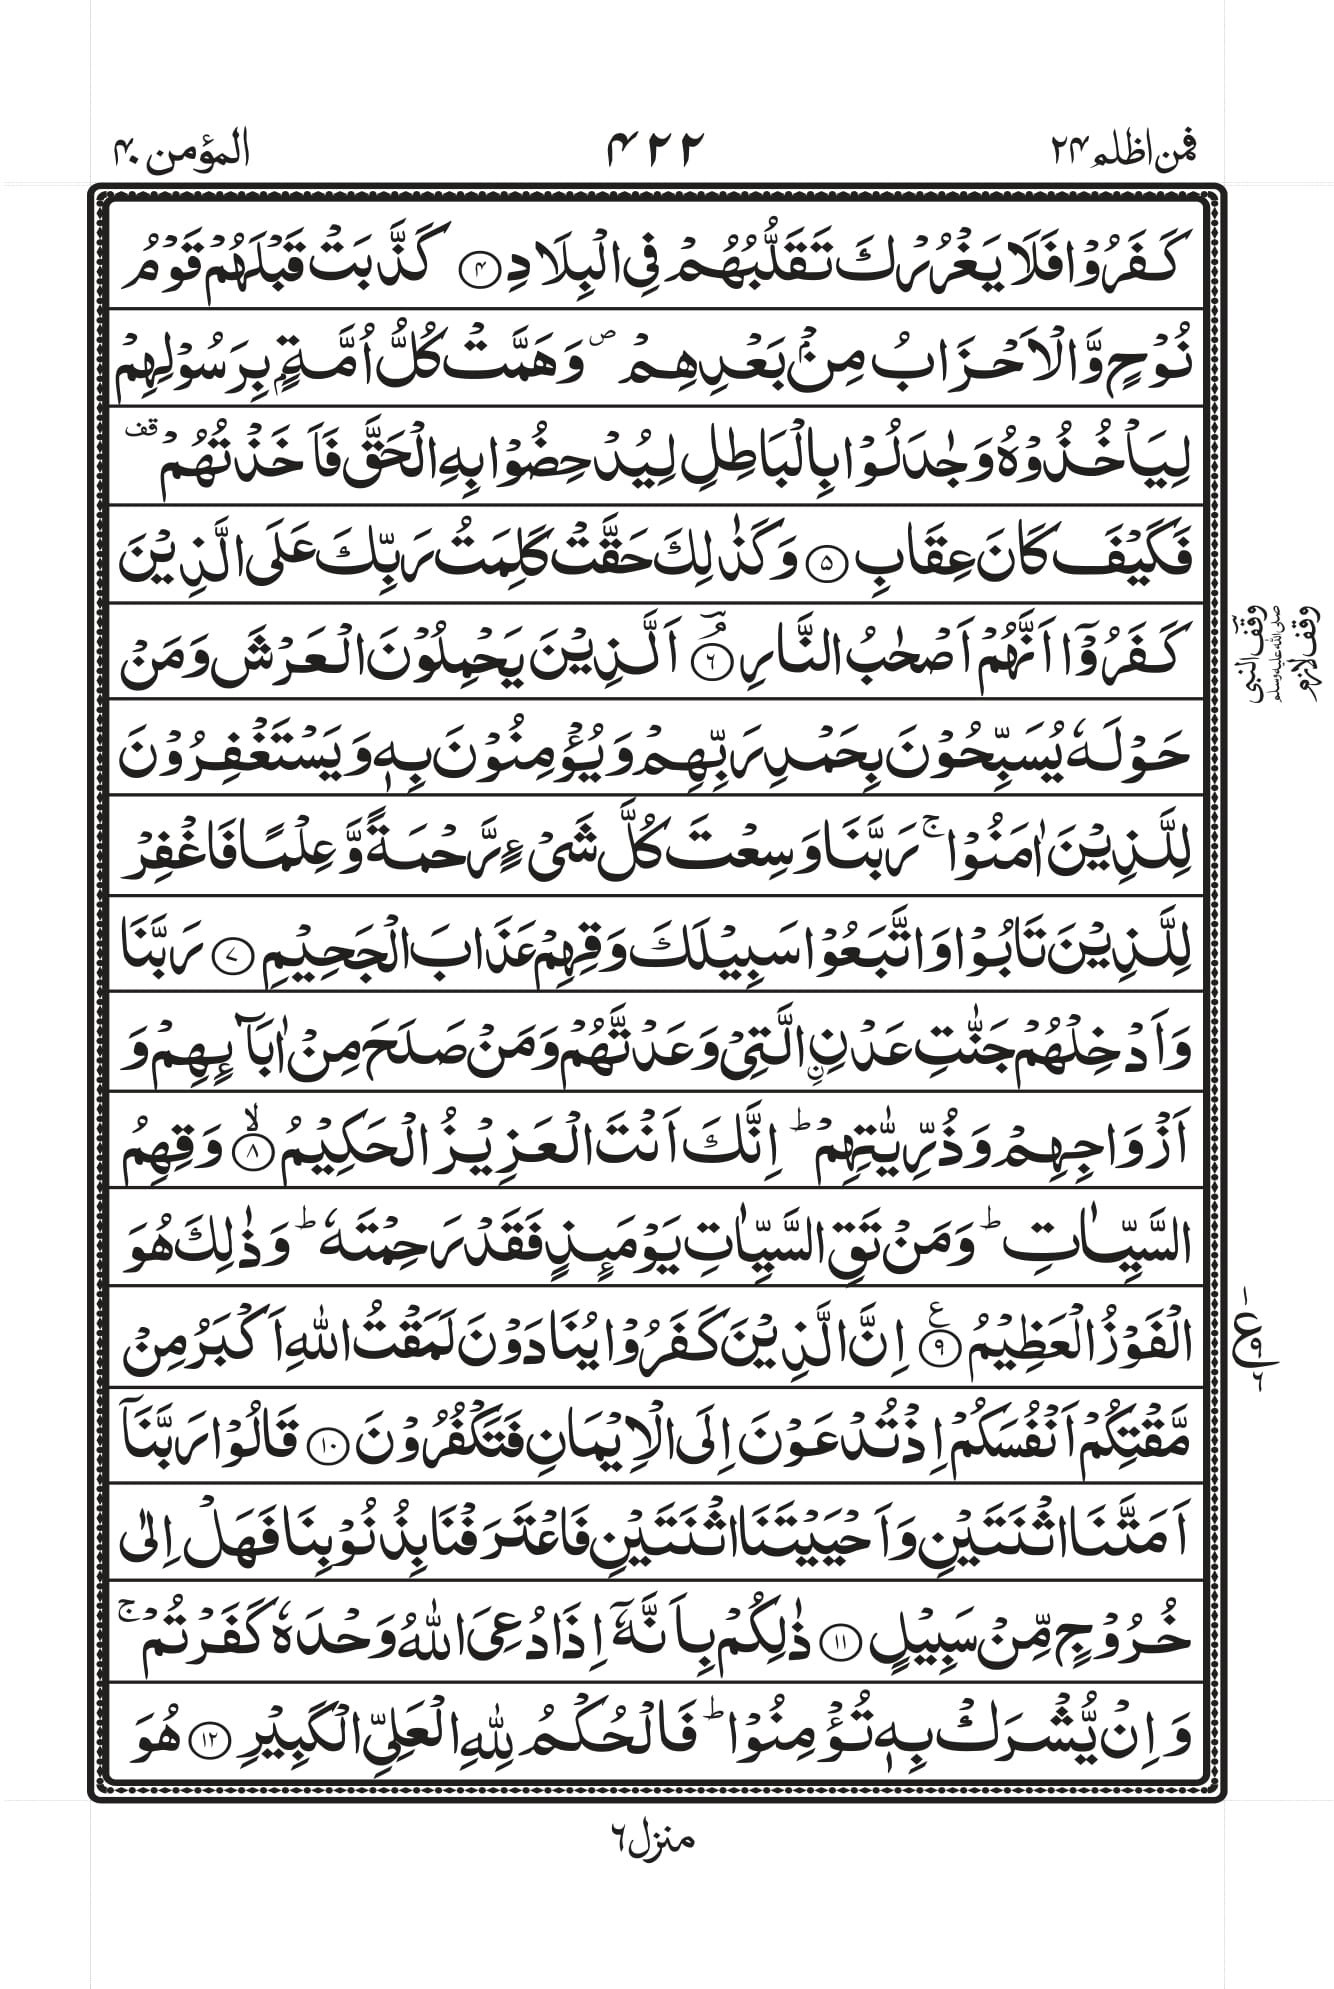 فمن اظلم ۲۴
۴۲۲
المؤمن ۴۰
كَفَرُوۡا فَلَا يَغۡرُرۡكَ تَقَلُّبُهُمۡ فِى الۡبِلَادِ ﴿۴﴾ كَذَّبَتۡ قَبۡلَهُمۡ قَوۡمُ
نُوۡحٍ وَّالۡاَحۡزَابُ مِنۡۢ بَعۡدِهِمۡ ص وَهَمَّتۡ كُلُّ اُمَّةٍۭ بِرَسُوۡلِهِمۡ
لِيَاۡخُذُوۡهُ وَجٰدَلُوۡا بِالۡبَاطِلِ لِيُدۡحِضُوۡا بِهِ الۡحَقَّ فَاَخَذۡتُهُمۡ قف
فَكَيۡفَ كَانَ عِقَابِ ﴿۵﴾ وَكَذٰلِكَ حَقَّتۡ كَلِمَتُ رَبِّكَ عَلَى الَّذِيۡنَ
كَفَرُوۡۤا اَنَّهُمۡ اَصۡحٰبُ النَّارِ ﴿۶﴾ۘ اَلَّذِيۡنَ يَحۡمِلُوۡنَ الۡعَرۡشَ وَمَنۡ
وقف النبی صلی الله علیه وسلم
وقف لازم
حَوۡلَهٗ يُسَبِّحُوۡنَ بِحَمۡدِ رَبِّهِمۡ وَيُؤۡمِنُوۡنَ بِهٖ وَيَسۡتَغۡفِرُوۡنَ
لِلَّذِيۡنَ اٰمَنُوۡا ۚ رَبَّنَا وَسِعۡتَ كُلَّ شَىۡءٍ رَّحۡمَةً وَّعِلۡمًا فَاغۡفِرۡ
لِلَّذِيۡنَ تَابُوۡا وَاتَّبَعُوۡا سَبِيۡلَكَ وَقِهِمۡ عَذَابَ الۡجَحِيۡمِ ﴿۷﴾ رَبَّنَا
وَاَدۡخِلۡهُمۡ جَنّٰتِ عَدۡنِ ۨ الَّتِىۡ وَعَدۡتَّهُمۡ وَمَنۡ صَلَحَ مِنۡ اٰبَآٮِٕهِمۡ وَ
اَزۡوَاجِهِمۡ وَذُرِّيّٰتِهِمۡ ؕ اِنَّكَ اَنۡتَ الۡعَزِيۡزُ الۡحَكِيۡمُ ﴿۸﴾ۙ وَقِهِمُ
السَّيِّاٰتِ ؕ وَمَنۡ تَقِ السَّيِّاٰتِ يَوۡمَٮِٕذٍ فَقَدۡ رَحِمۡتَهٗ ؕ وَذٰلِكَ هُوَ
الۡفَوۡزُ الۡعَظِيۡمُ ﴿۹﴾ع اِنَّ الَّذِيۡنَ كَفَرُوۡا يُنَادَوۡنَ لَمَقۡتُ اللّٰهِ اَكۡبَرُ مِنۡ
۱ ع ۹ ۶
مَّقۡتِكُمۡ اَنۡفُسَكُمۡ اِذۡ تُدۡعَوۡنَ اِلَى الۡاِيۡمَانِ فَتَكۡفُرُوۡنَ ﴿۱۰﴾ قَالُوۡا رَبَّنَاۤ
اَمَتَّنَا اثۡنَتَيۡنِ وَاَحۡيَيۡتَنَا اثۡنَتَيۡنِ فَاعۡتَرَفۡنَا بِذُنُوۡبِنَا فَهَلۡ اِلٰى
خُرُوۡجٍ مِّنۡ سَبِيۡلٍ ﴿۱۱﴾ ذٰلِكُمۡ بِاَنَّهٗۤ اِذَا دُعِىَ اللّٰهُ وَحۡدَهٗ كَفَرۡتُمۡ ۚ
وَاِنۡ يُّشۡرَكۡ بِهٖ تُؤۡمِنُوۡا ؕ فَالۡحُكۡمُ لِلّٰهِ الۡعَلِىِّ الۡكَبِيۡرِ ﴿۱۲﴾ هُوَ
منزل ۶